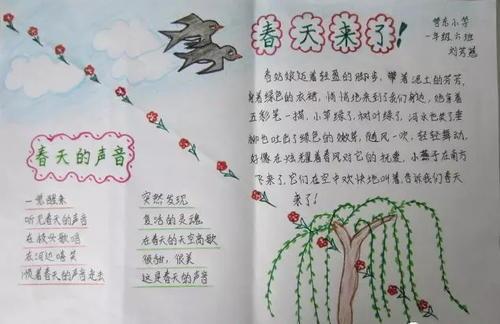 春天来了!
曹东小学
一年级六班
刘芳慧
春姑娘迈着轻盈的脚步,带着泥土的芳芳,
身着绿色的衣裙,悄悄地来到了我们身边,她拿着
五彩笔一描,小草绿了,树叶绿了,河水也笑了。垂
柳也吐出了绿色的嫩芽,随风一吹,轻轻舞动,
好像在炫耀着春风对它的抚爱。小燕子在南方
飞来了,它们在空中欢快地叫着,告诉我们春天
来了!
春天的声音
一觉醒来
听见春天的声音
在枝头歌唱
在河边嬉笑
顺着春天的声音走去
突然发现
复活的灵魂
在春天的天空高歌
很甜,很美
这是春天的声音